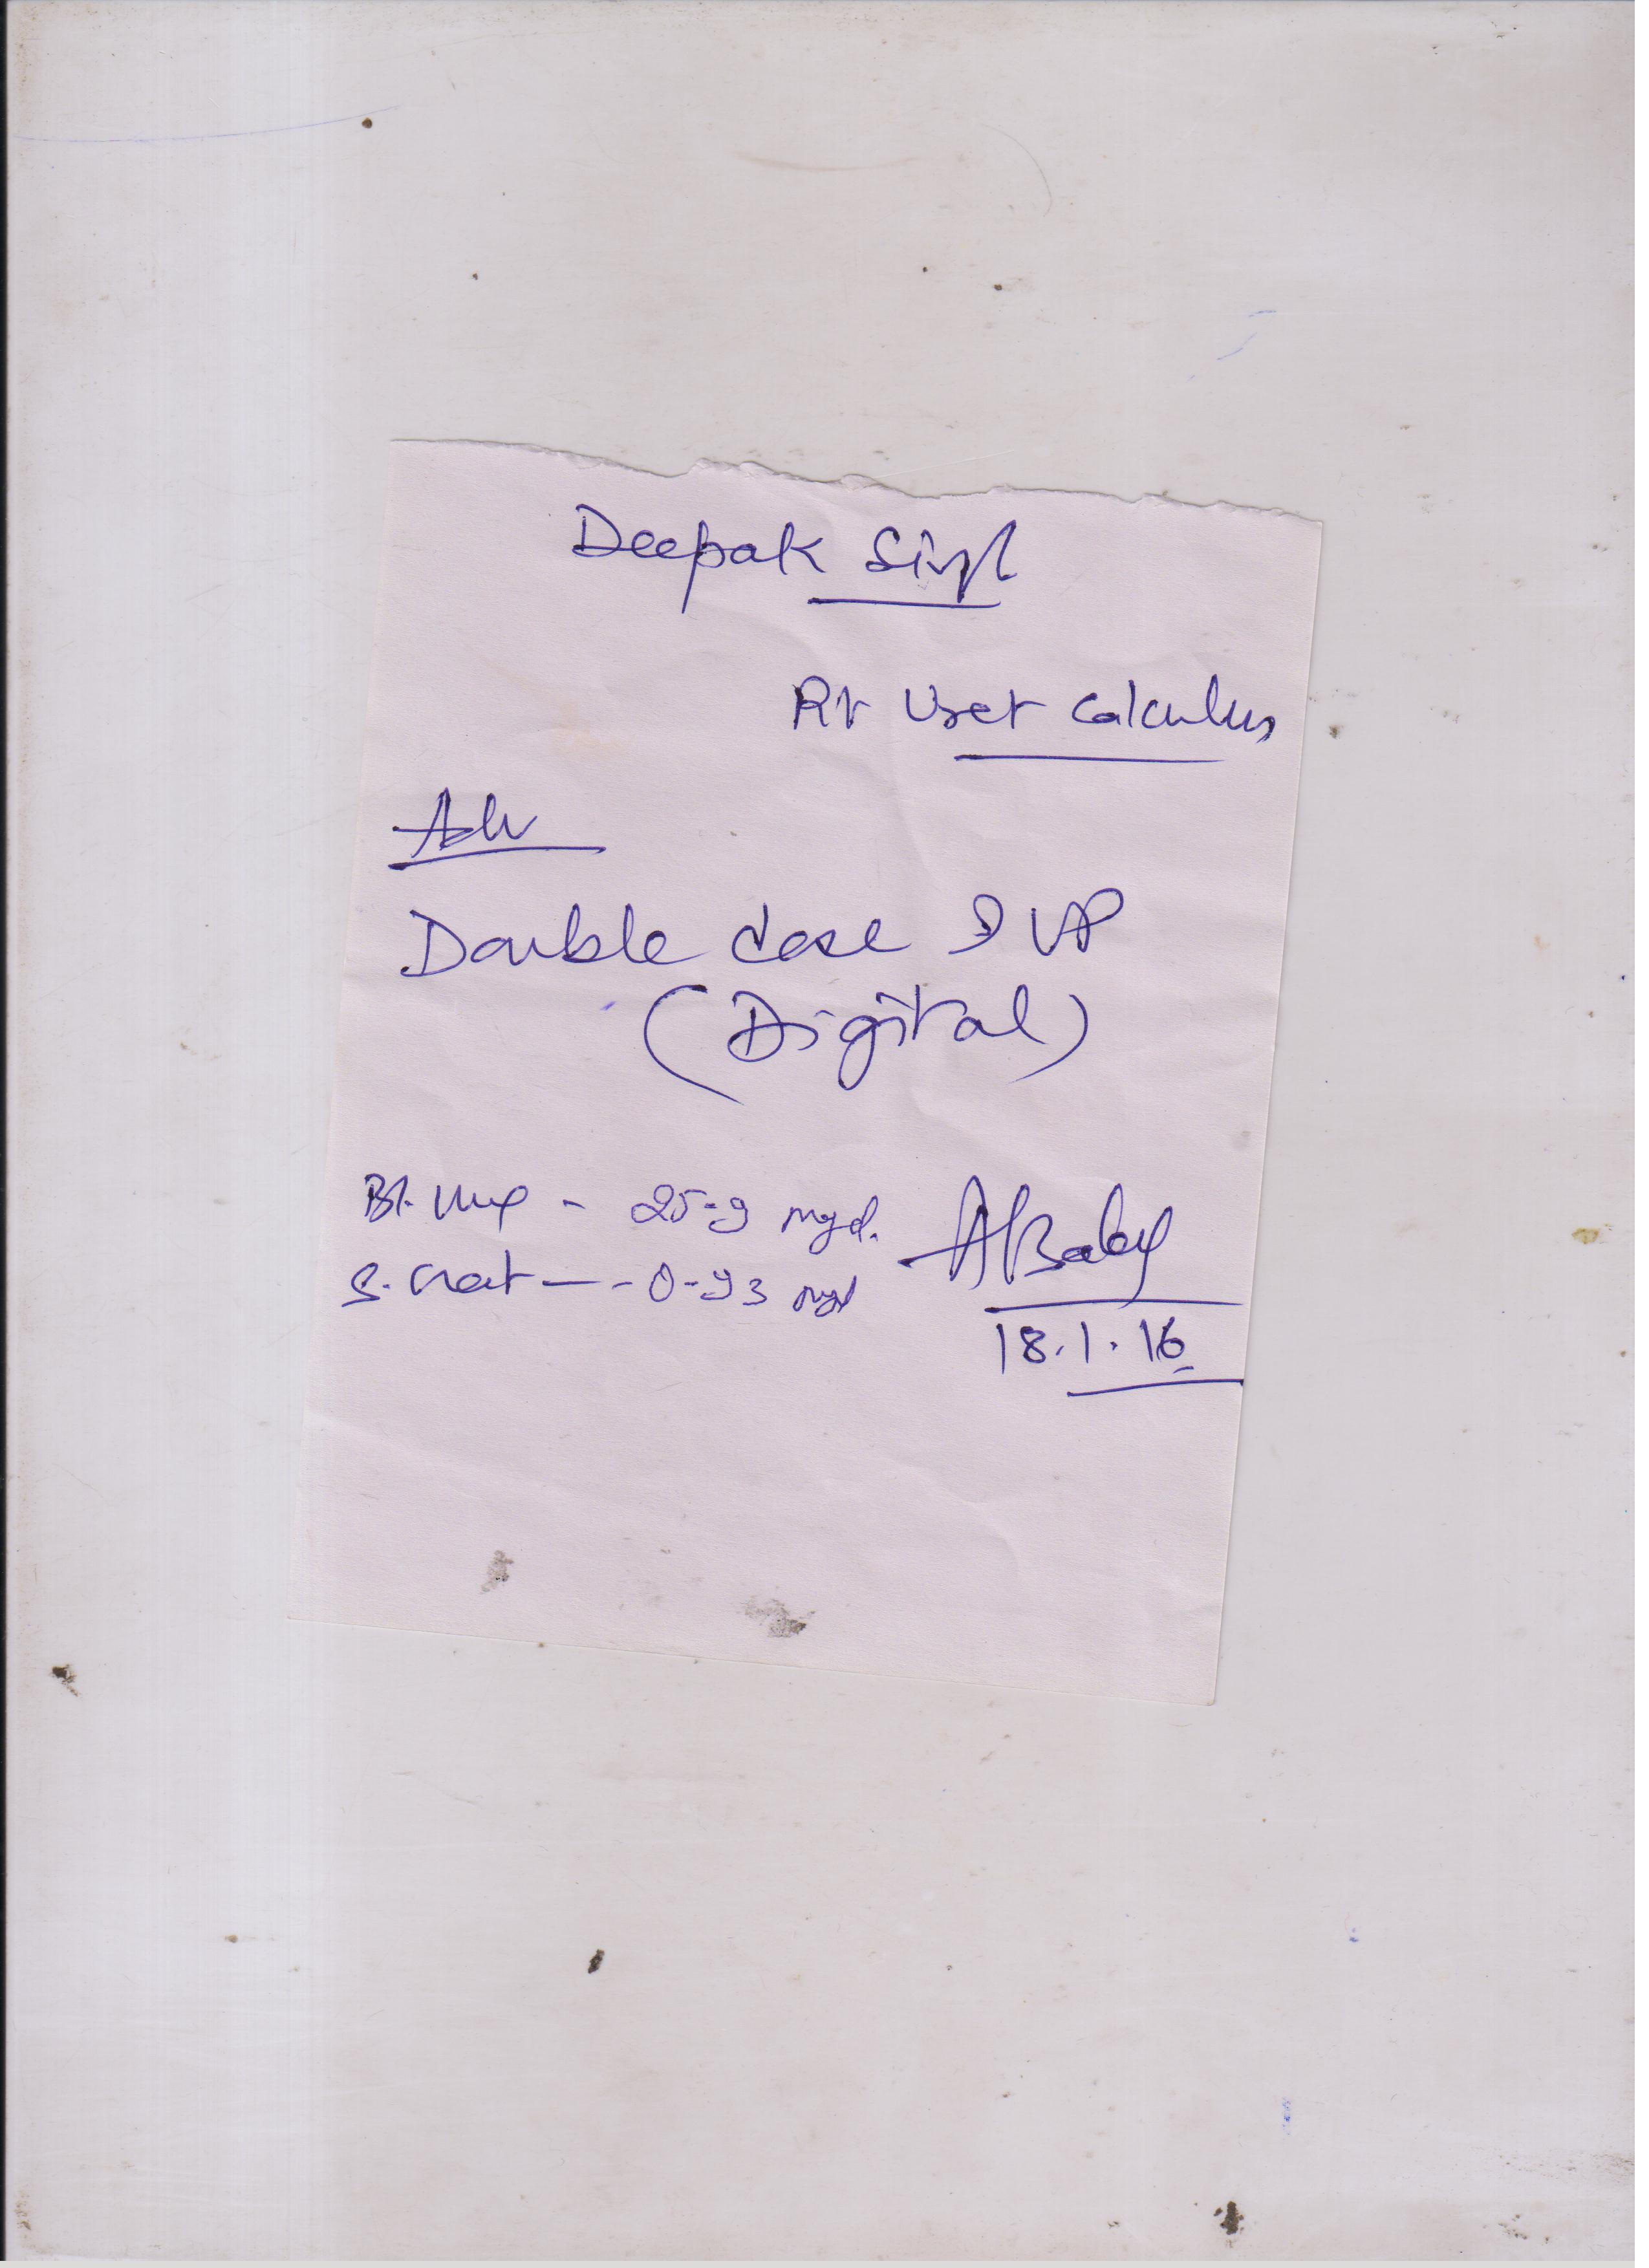 Deepak Singh
Rt Uret calculus
Adv
Double dose IVP
(Digital)
Bl. Urea - 25.9 mg/dl.
S. Creat - - 0.93 mg/dl
18.1.16